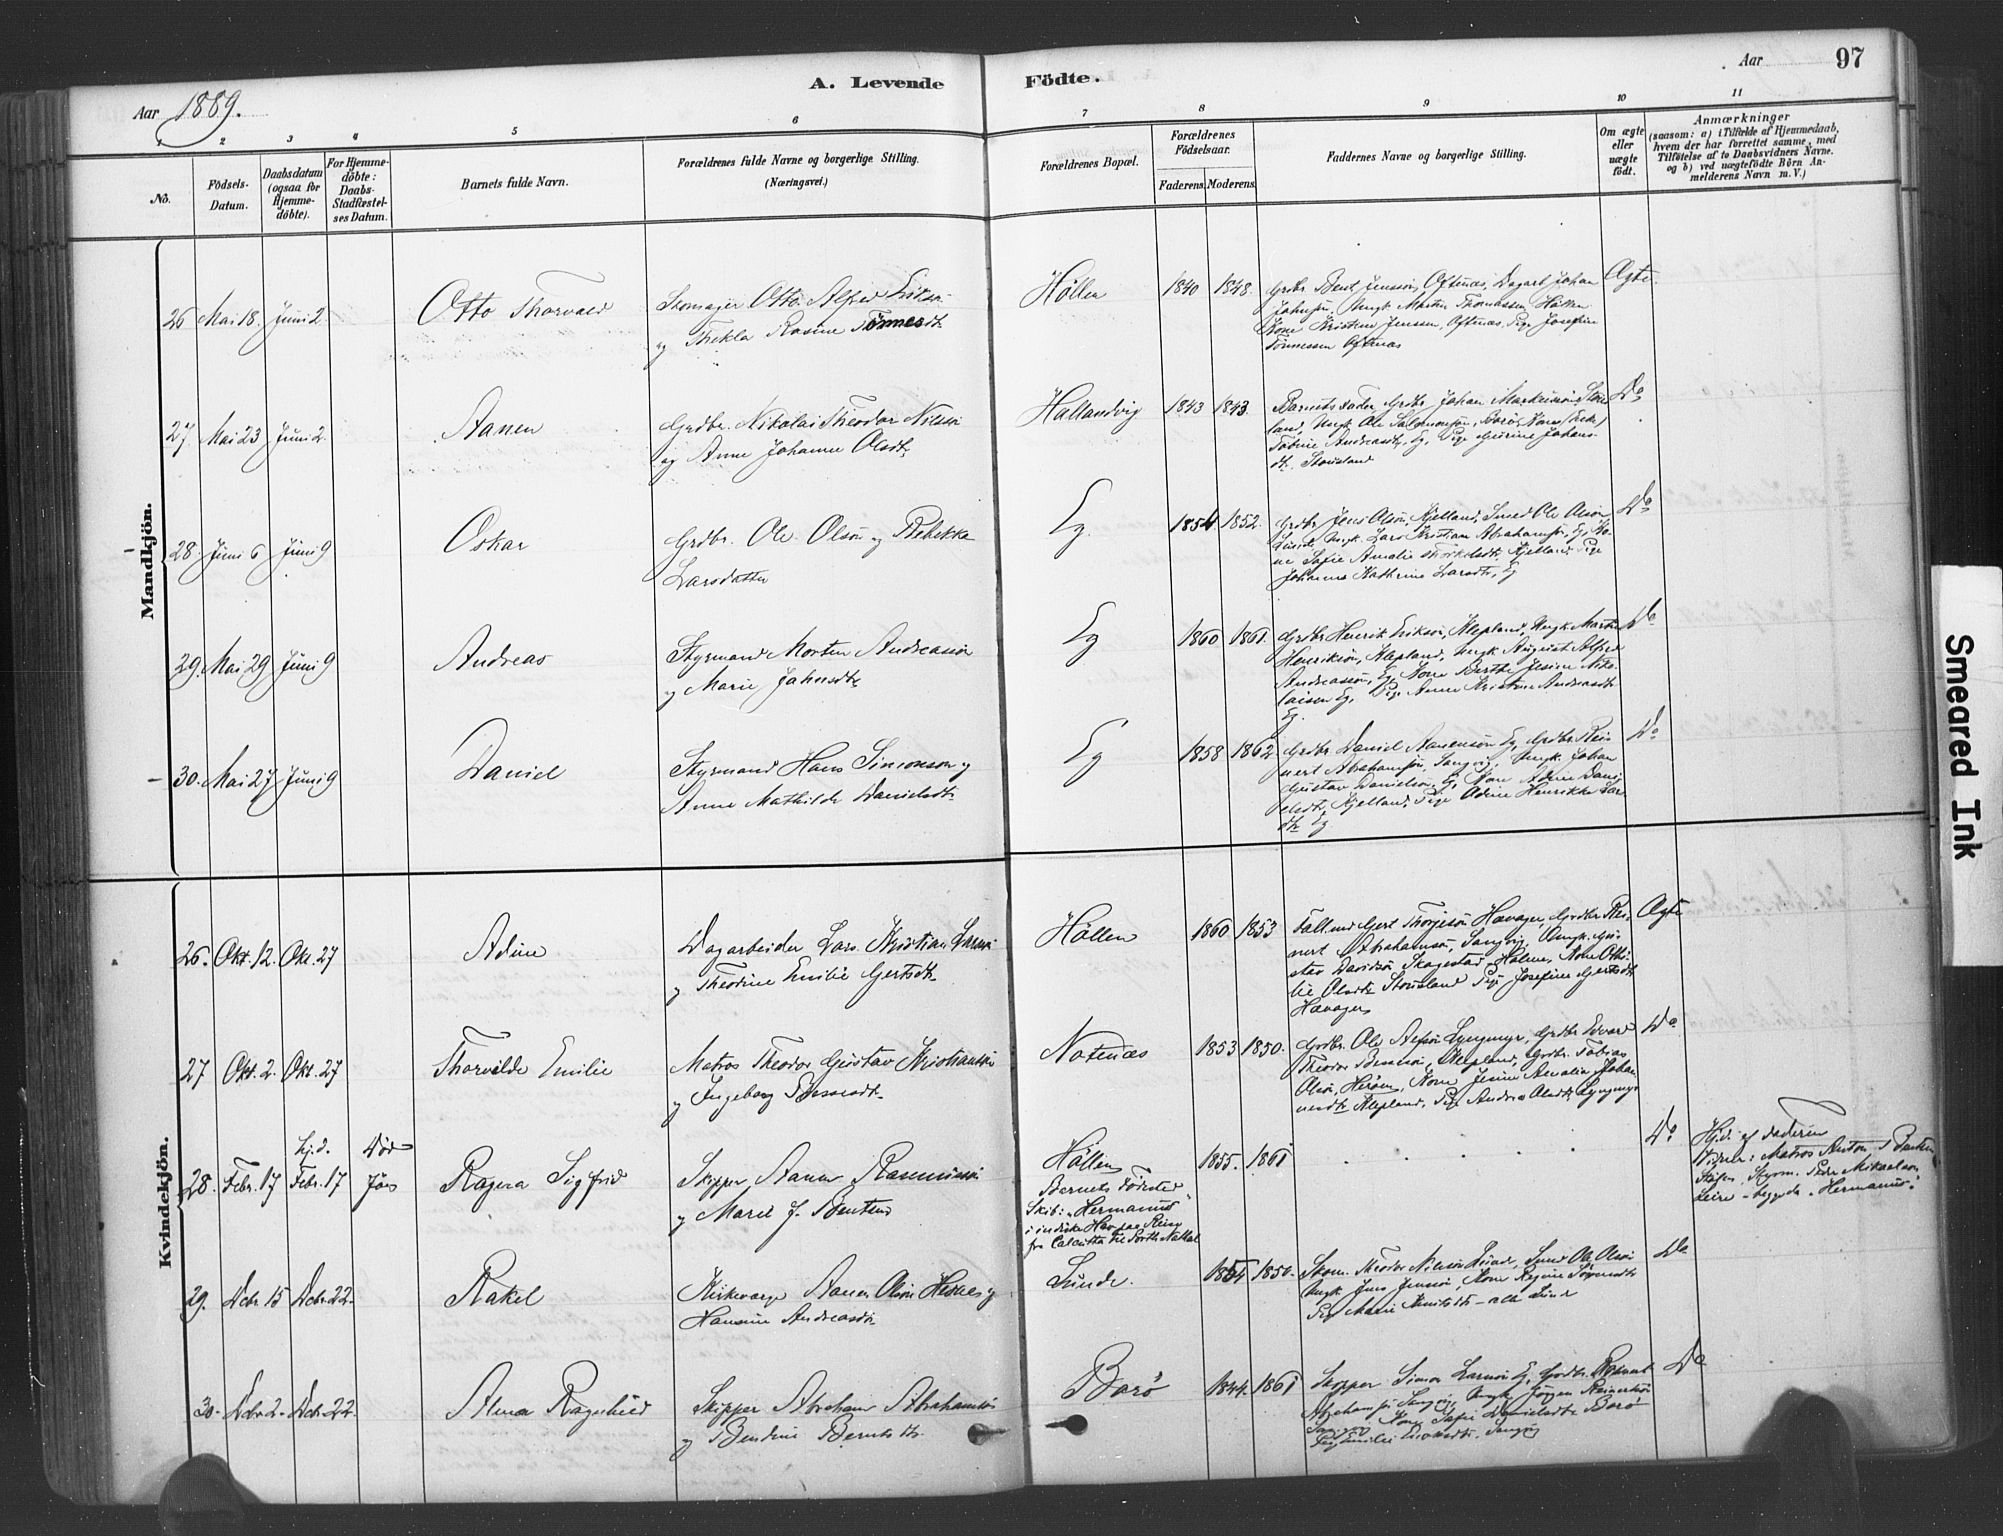 A. Levende Födte.
Aar 97
Aar 1889.
1 2 3 4 5 6 7 8 9 10 11
No.
Födsels-Datum.
Daabsdatum (ogsaa for Hjemme-döbte).
For Hjemme-döbte: Daabs-Stadfæstel-ses Datum.
Barnets fulde Navn.
Forældrenes fulde Navne og borgerlige Stilling.
(Næringsvei.)
Forældrenes Bopæl.
Forældrenes Födselsaar.
Faderens. Moderens.
Faddernes Navne og borgerlige Stilling.
Om ægte eller uægte födt.
Anmærkninger
(saasom: a) i Tilfælde af Hjemmedaab,
hvem der har forrettet samme, med
Tilföielse af to Daabsvidners Navne.
og b) ved uægtefödte Börn An-
melderens Navn m. V.)
Mandkjön.
26 Mai 18. Juni 2. Otto Thorvald
Skomager Otto Alfred
og Thekla Rasine Tönnesdtr
Höllen 1840 1848.
Grdbr Bent Jensen, Oftenæs, Dagarb Johan
Johnsen, Ungk Martin Thomassen, Höllen
Kone Kristine Jensen, Oftenæs, Pige Josefine
Tönnessen Oftenæs
Ægte
27. Mai 23 Juni 2. Aanen
Grdbr. Nikolai Theodor Nilsen
og Anne Johanne Olsdtr
Hallandvig 1843 1843.
Barnets Fader, Grdbr Johan
land, Ungk Ole Salomonsön, Borö, Kone
Tobine Andreasdtr, Eg, Pige Johans-
dtr. Stousland
Do
28. Juni 6 Juni 9 Oskar
Grdbr. Ole Olsön og Rebekka
Larsdatter
Eg. 1854 1852.
Grdbr Jens Olsön, Kjelland, Smed Ole Olsön
Lunde, Ungk. Lars Kristian Abrahamsön, Eg, Ko-
ne Sofie Amalie Kjelland, Pige
Johanne Kathrine Larsdtr, Eg
Do
29. Mai 29 Juni 9 Andreas
Styrmand Morten Andreassön
og Marie Johnsdtr
Eg 1860 1861.
Grdbr Henrik Eriksön, Klepland, Ungk Martin
Henriksön, Klepland, Ungk August Alfred
Andreassön, Eg, Kone Berthe Jesine Niko-
laisen Eg, Pige Anne Kristine Andreasdtr
Eg.
Do
30. Mai 27 Juni 9 Daniel
Styrmand Hans Simonsen og
Anne Mathilde Danielsdtr
Eg 1858 1862.
Grdbr Daniel Aanensön Eg, Grdbr Rei-
nert Abrahamsön, Sangvig, Ungk. Johan
Gustav Danielsen, Eg, Kone Adine Dani-
elsdtr, Kjelland, Pige Adine Henrikke Lars-
dtr Eg
Do
Kvindekjön.
26. Okt. 12. Okt. 27 Adine
Dagarbeider Lars Kristian Larsen
og Theodine Emilie Gertsdtr
Höllen 1860 1853
Gert Thorjesön Havager, Grdbr Rei-
nert Abrahamsön, Sangvig, Ungk. Gu-
stav Davidsön, Skagestad, Holme, Kone Otti-
lie Olsdtr Stousland Pige Josefine Gertsdtr
Havager
Ægte
27 Okt. 2. Okt. 27 Thorvalde Emilie
Matros Theodor Gustav Kristiansen
og Ingeborg Bessesdtr
Notenæs 1853 1850.
Grdbr. Ole Lyngmyr, Grdbr Edvard
Theodor Klepland, Grdbr. Tobias
Olsön, Heröen, Kone Jesine Amalie Johan-
nesdtr Klepland, Pige Andrea Olsdtr Lyngmyr
Do
28. Febr. 17 hj.d. Febr. 17 Död för Ragna Sigfrid
Skipper Aanen Rasmussön
og Marie J. Bentsen
Höllen
Barnets Födested
Skib: „Hermanus"
i indiske Hav paa Reise
fra Calcutta til Port Natal
1855. 1861
Do
Hjd. af Faderen
Vidner: Matros Anton
Styrm. Peder Mikaelsen
begge paa „Hermanus".
29. Dcbr. 15 Dcbr. 22. Rakel
Kirkværge Aanen Olsön Hesnes og
Hansine Andreasdtr
Lunde. 1854 1850.
Skom. Theodor Nilsön Lunde, Smed Ole Olsön
Ungk Jens Jensön, Kone Regine
Pige Marie Knutsdtr - alle Lunde
Do
30. Dcbr 2. Dcbr. 22. Alma Ragnhild
Skipper Abraham Abrahamsön
og Bendine Berntsdtr
Borö 1844. 1861
Skipper Simon Larsön Eg, Grdbr. Reinert
Abrahamsön Sangvig, Ungk Jörgen Reinertsön
Sangvig, Kone Sofie Danielsdtr Borö
Pige Emilie Sangvig
Do
Smeared Ink